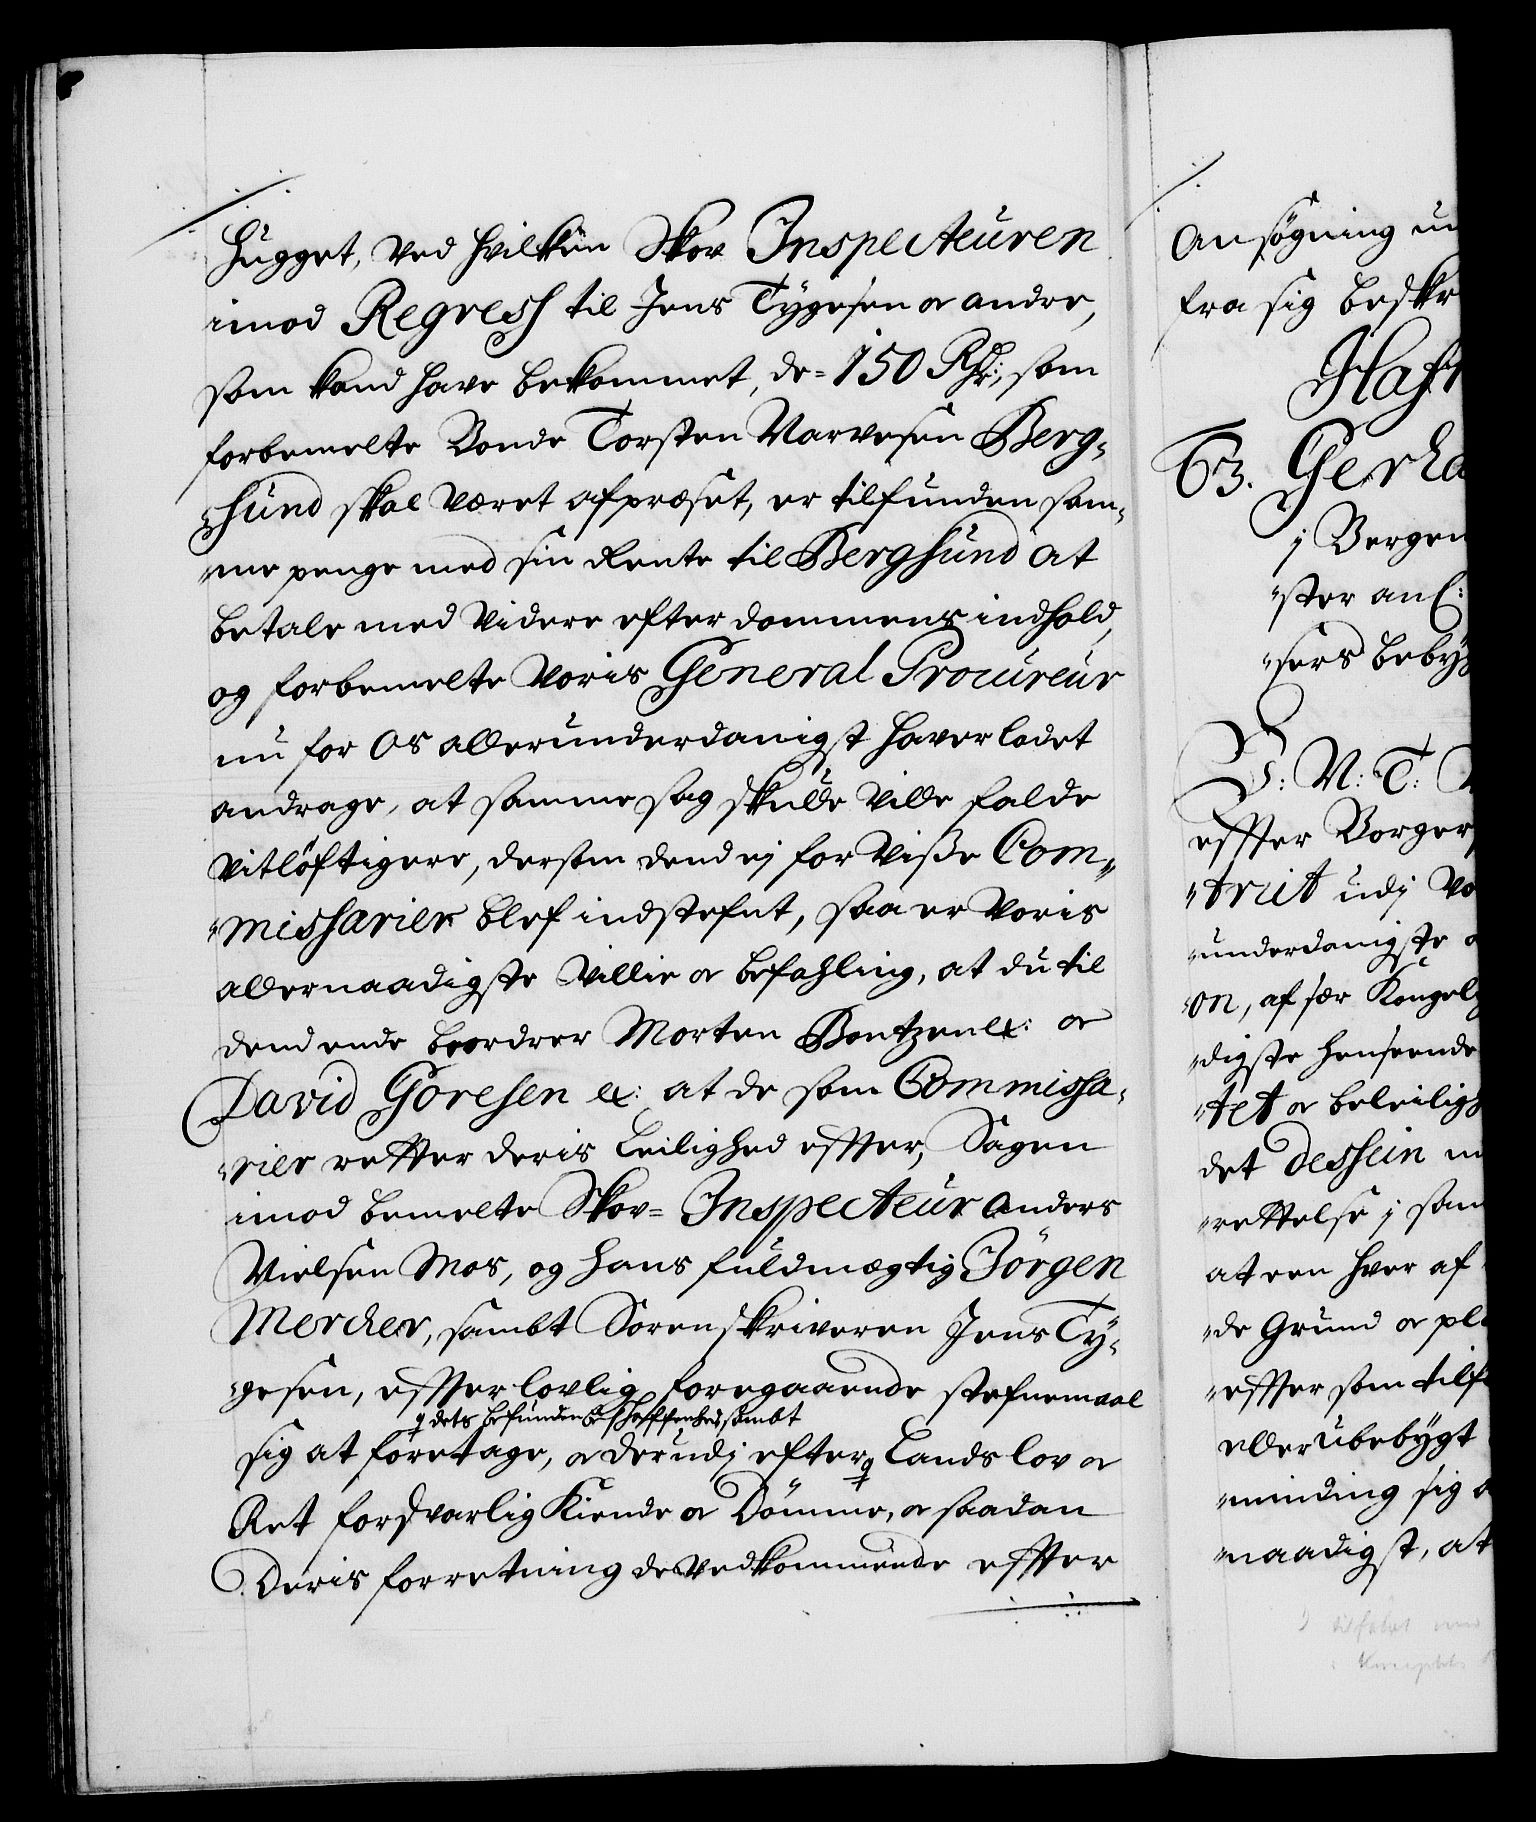 hugget, ved hvilken Skov Inspecteuren
imod Regress til Jens Tygesen oc andre,
som kand have bekommet, de= 150 Rdr:, som
forbemelte Bonde Torsten Narvesen Berg-
"sund skal været afpræset, er tilfunden sam-
"me penge med sin Rente til Bergsund at
betale med videre efter dommens indhold,
og forbemelte Voris General Procureur
nu for Os allerunderdanigst haver ladet
andrage, at samme sag skulle ville falde
vitlöftigere, dersom dend ej for visse Com"
"missarier blef indstefnt, saa er Voris
allernaadigste Villie oc befahling, at du til
dend ende beordrer Morten Bentzen etc: oc
David Goresen etc: at de som Commissa-
"rier retter deris leilighed effter, Sagen
imod bemelte Skov= Inspecteur Anders
Nielsen Mos, og hans fuldmægtig Jörgen
Mercker, sambt Sorenskriveren Jens Ty-
"gesen, effter lovlig foregaaende stefnemaal
dets befunden beschaffenhed sambt
sig at foretage, oc derudj efter Lands lov oc
Ret forsvarlig Kiende oc Dömme, oc saadan
Deris forretning de vedkommende effter
Ansögning un
fra sig beskr
Haf
63. Gerha
j Bergen
"ster an
"sers bebyg
G: V: T:
effter Borger
"trict udj Vo
"underdanigste
"on, af sær Kongel
"digste henseende
"tet oc beleiligh
det dessein
"rettelse j sam
at een hver af
"de Grund oc pl
"effter som tilf
eller ubebygt
"minding sig
"naadigst, at